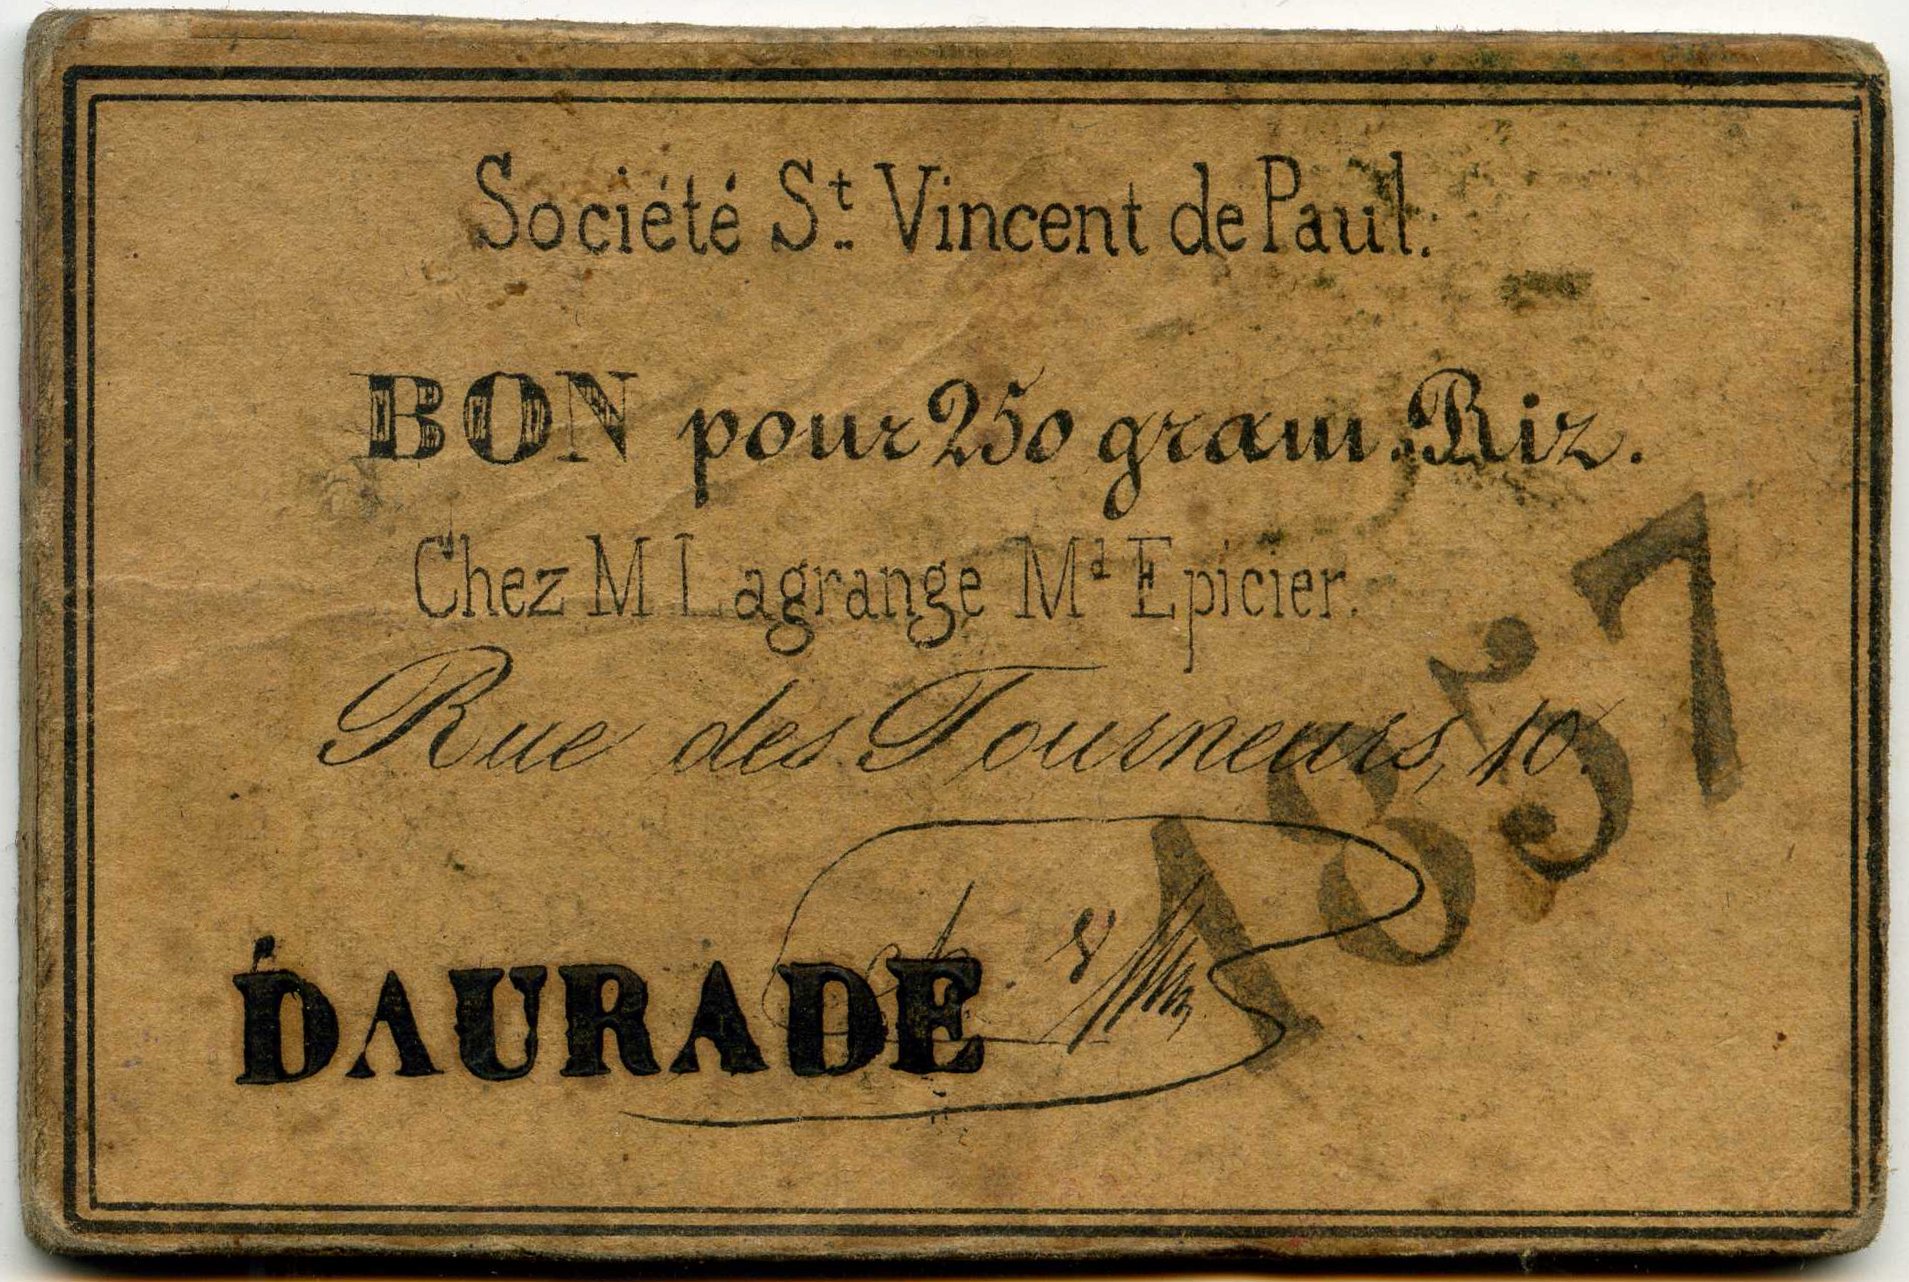 Société St. Vincent de Paul.
BON pour 250 gram. Riz.
Chez M Lagrange Md Epicier.
Rue des Tourneurs, 10.
1857
DAURADE